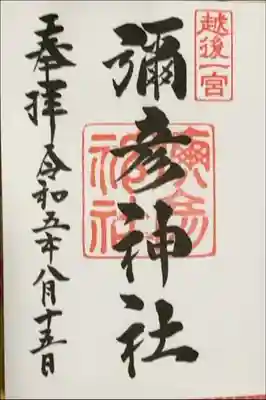 越後一宮
彌彦神社
奉拝 令和五年八月十五日
彌彦
神社